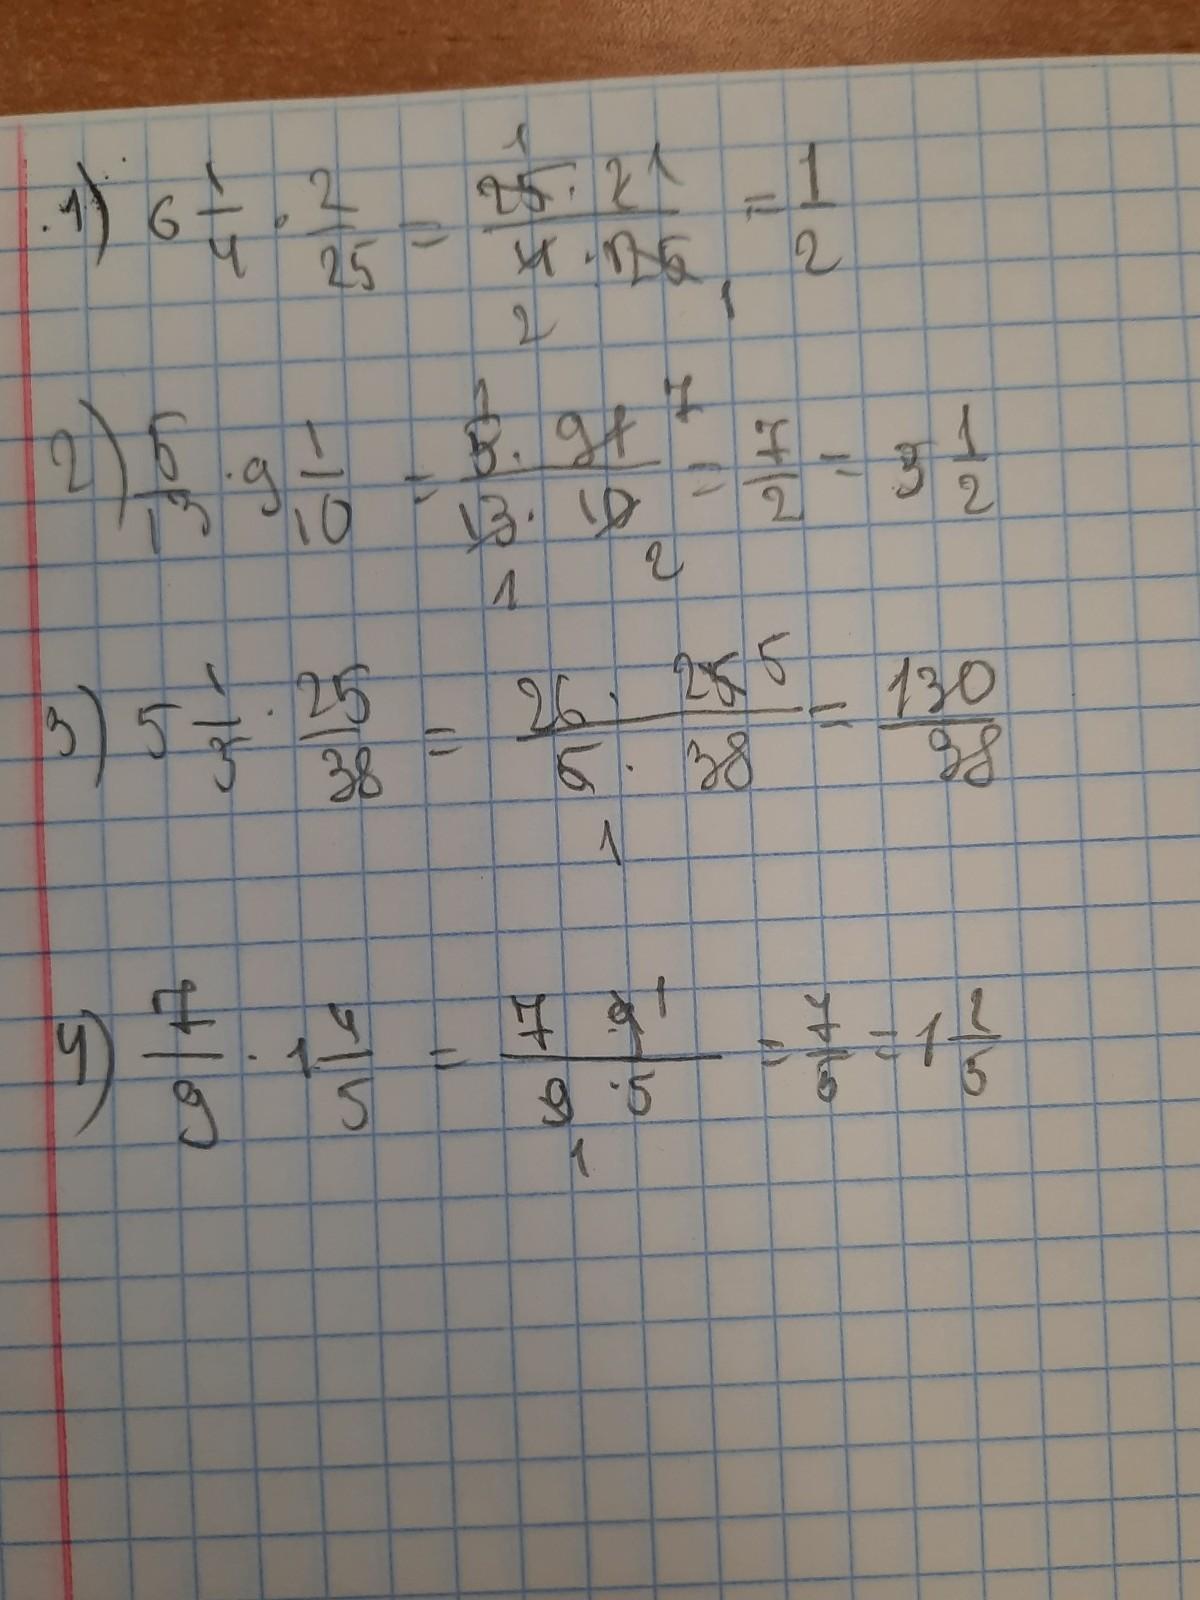 1) 6 1/4 · 2/25 = 25 1 · 2 1 / 4 2 · 25 1 = 1/2
2) 5/13 · 9 1/10 = 5 1 · 91 7 / 13 1 · 10 2 = 7/2 = 3 1/2
3) 5 1/5 · 25/38 = 26 · 25 5 / 5 1 · 38 = 130/38
4) 7/9 · 1 4/5 = 7 9 1 / 9 1 · 5 = 7/5 = 1 2/5